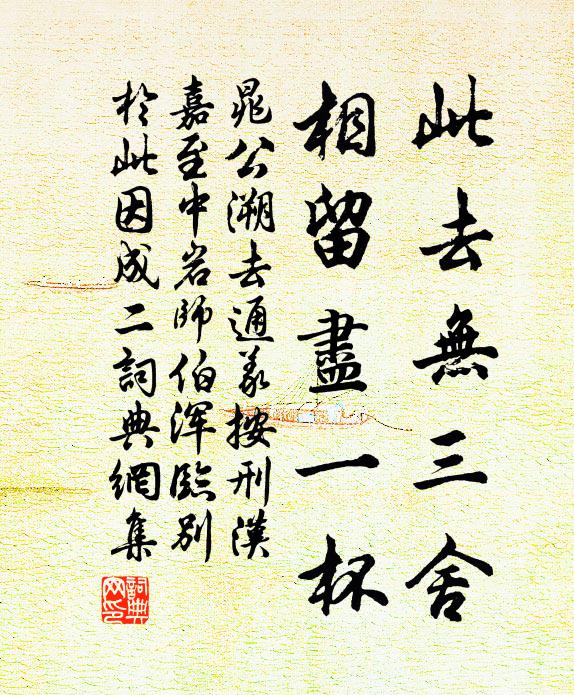 此去無三舍
相留盡一杯
晁公溯去通義按刑漢
嘉至中岩師伯渾臨別
於此因成二詞典網集
詞典網印